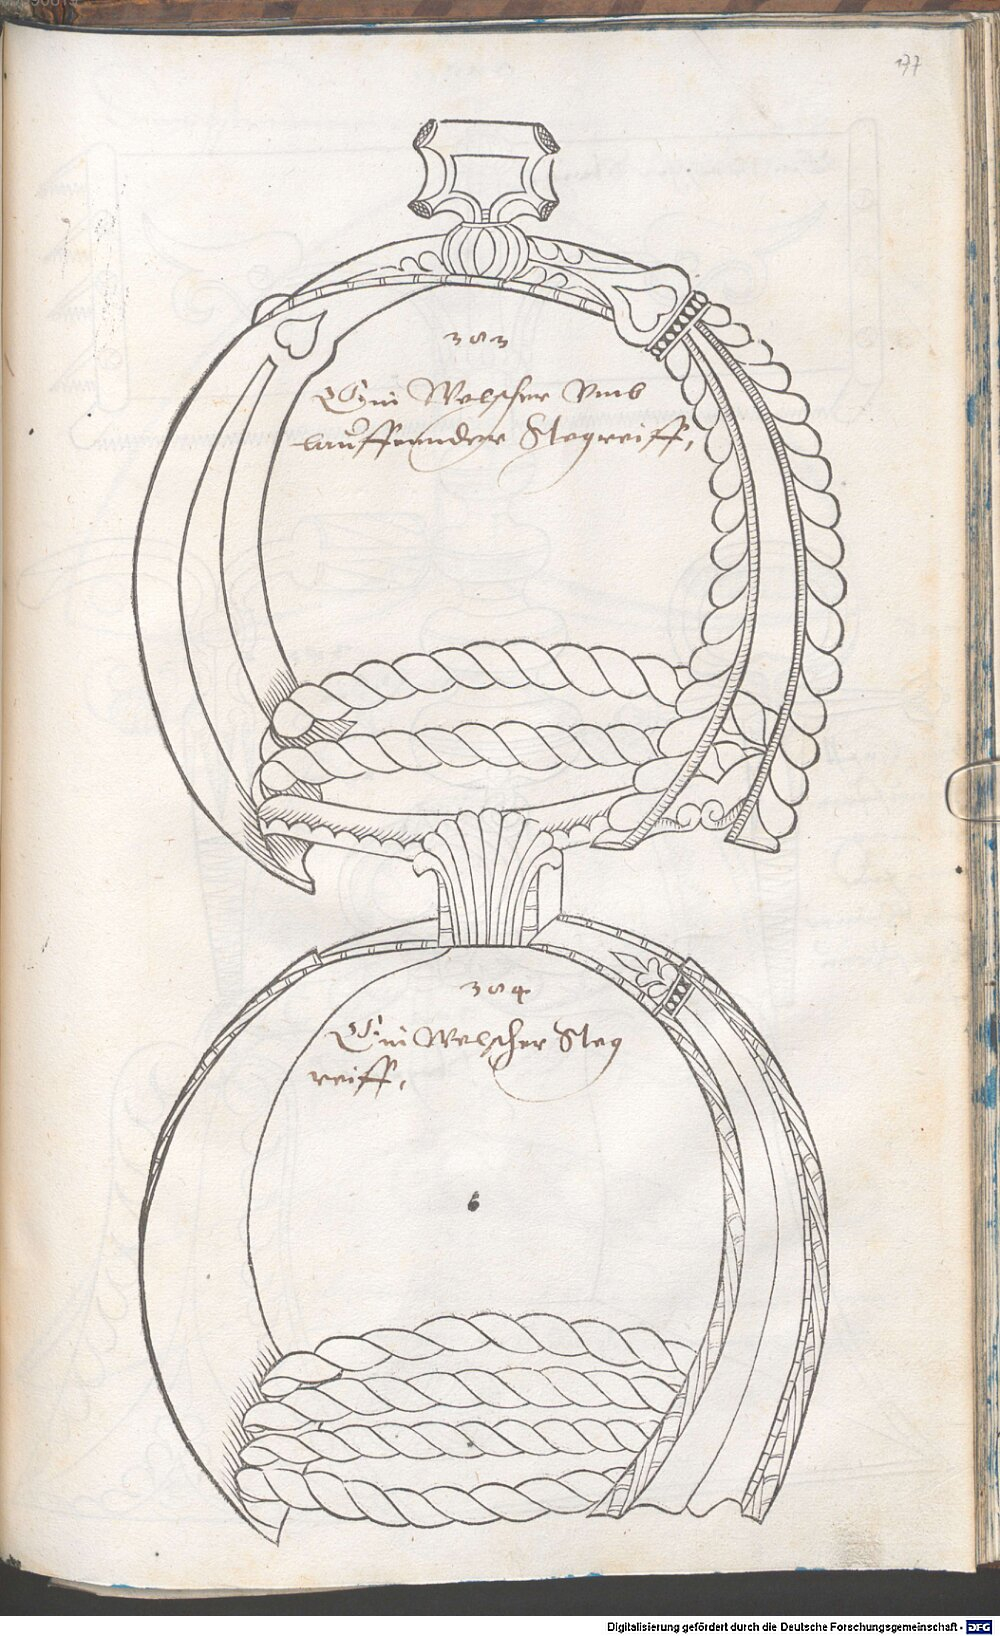 177
303
Ein Welscher Vmb
lauffennder Stegreiff,
304
Ein Welscher Steg
reiff,
6
Digitalisierung gefördert durch die Deutsche Forschungsgemeinschaft - DFG